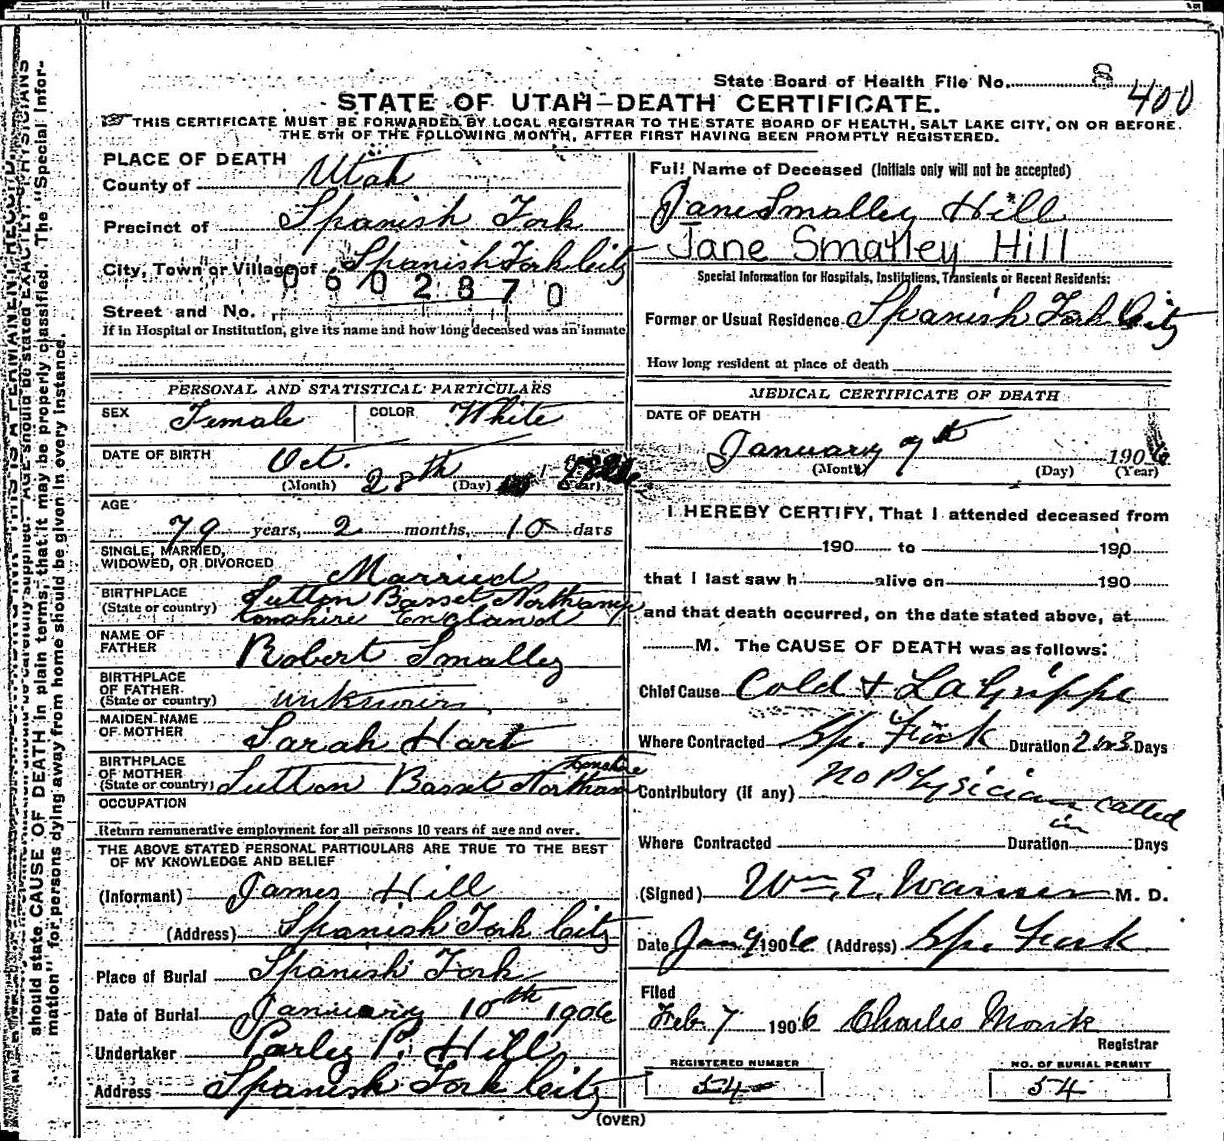 State Board of Health File No. 8
400
STATE OF UTAH—DEATH CERTIFICATE.
THIS CERTIFICATE MUST BE FORWARDED BY LOCAL REGISTRAR TO THE STATE BOARD OF HEALTH, SALT LAKE CITY, ON OR BEFORE
THE 5TH OF THE FOLLOWING MONTH, AFTER FIRST HAVING BEEN PROMPTLY REGISTERED.
PLACE OF DEATH
County of Utah
Precinct of Spanish Fork
City, Town or Village of Spanish Fork City
0602870
Street and No.
If in Hospital or Institution, give its name and how long deceased was an inmate
PERSONAL AND STATISTICAL PARTICULARS
SEX Female COLOR White
DATE OF BIRTH Oct. 28th
(Month) (Day) (Year)
AGE
79 years, 2 months, 10 days
SINGLE, MARRIED,
WIDOWED, OR DIVORCED Married
BIRTHPLACE Sutton Basset Northamp
(State or country) tonshire England
NAME OF
FATHER Robert Smalley
BIRTHPLACE
OF FATHER
(State or country) unknown
MAIDEN NAME
OF MOTHER Sarah Hart
BIRTHPLACE
OF MOTHER tonshire
(State or country) Sutton Basset Northam
OCCUPATION
Return remunerative employment for all persons 10 years of age and over.
THE ABOVE STATED PERSONAL PARTICULARS ARE TRUE TO THE BEST
OF MY KNOWLEDGE AND BELIEF
(Informant) James Hill
(Address) Spanish Fork City
Place of Burial Spanish Fork
Date of Burial January 10th 1906
Undertaker Parley P. Hill
Address Spanish Fork City
Full Name of Deceased (Initials only will not be accepted)
Jane Smalley Hill
Jane Smalley Hill
Special Information for Hospitals, Institutions, Transients or Recent Residents:
Former or Usual Residence Spanish Fork City
How long resident at place of death
MEDICAL CERTIFICATE OF DEATH
DATE OF DEATH
January 7th 1906
(Month) (Day) (Year)
I HEREBY CERTIFY, That I attended deceased from
190 to 190
that I last saw h alive on 190
and that death occurred, on the date stated above, at
M. The CAUSE OF DEATH was as follows:
Chief Cause Cold & La Grippe
Where Contracted Sp. Fork Duration 2 or 3 Days
Contributory (if any) No Physician called
in
Where Contracted Duration Days
(Signed) Wm. E. Warner M. D.
Date Jan 9 1906 (Address) Sp. Fork
Filed
Feb. 7 1906 Charles Monk
Registrar
REGISTERED NUMBER
54
NO. OF BURIAL PERMIT
54
(OVER)
should state CAUSE OF DEATH in plain terms, that it may be properly classified. The "Special Infor-
mation" for persons dying away from home should be given in every instance.